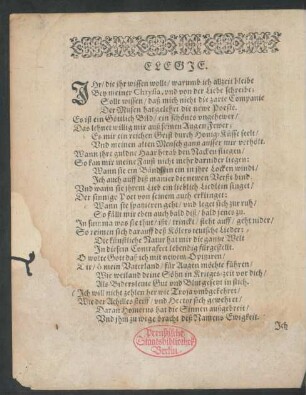 ELEGIE.
Ihr/ die ihr wissen wollt/ warumb ich allzeit bleibe
Bey meiner Chrysilla, und von der Liebe schreibe:
Sollt wissen/ daß mich nicht die zarte Companie
Der Musen hat gelehrt die newe Poesie.
Es ist ein Göttlich Bild/ ein schönes ungehewer/
Das lehret willig mir auß seinen Augen Fewer:
Es mir ein reichen Geist durch Honig Küsse
Und meinen alten Menschen gantz ausser mir
Wann ihre guldne Haar herab den Nacken fliegen/
So kan mir meine Faust nicht mehr darnider liegen:
Wann sie ein Bändlein ein in ihre Locken windt/
Ich auch auff daß manier der newen Verse bindt
Und wann sie ihrem Lieb ein lieblich Liedlein singet/
Der sinnige Poet von seinem auch erklinget:
Wann sie spatzieren geht/ und leget sich zur ruh/
So fällt mir eben auch bald diß/ bald jenes zu.
In summa was sie thut/ ißt/ trinckt/ steht auff/ geht nider/
So reimen sich darauff deß Kölers teutsche Lieder:
Die künstliche Natur hat mir die gantze Welt
In diesem Contrafect lebendig fürgestellt.
O wolte Gott daß ich mit newem Opiniren/
Dir/ ô mein Vaterland/ für Augen möchte führen/
Wie weiland deine Söhn in Krieges-zeit vor dich/
Als Bidersleute Gut und Blut gesetzt in stich.
Ich will nicht zehlen her wie Troja umbgekehret/
Wie der Achilles stritt/ und Hector sich gewehret/
Daran Homerus hat die Sinnen außgebreit/
Und ihm zu wege bracht deß Namens Ewigkeit.
Ich
Preußische
Staatsbibliothek
Berlin